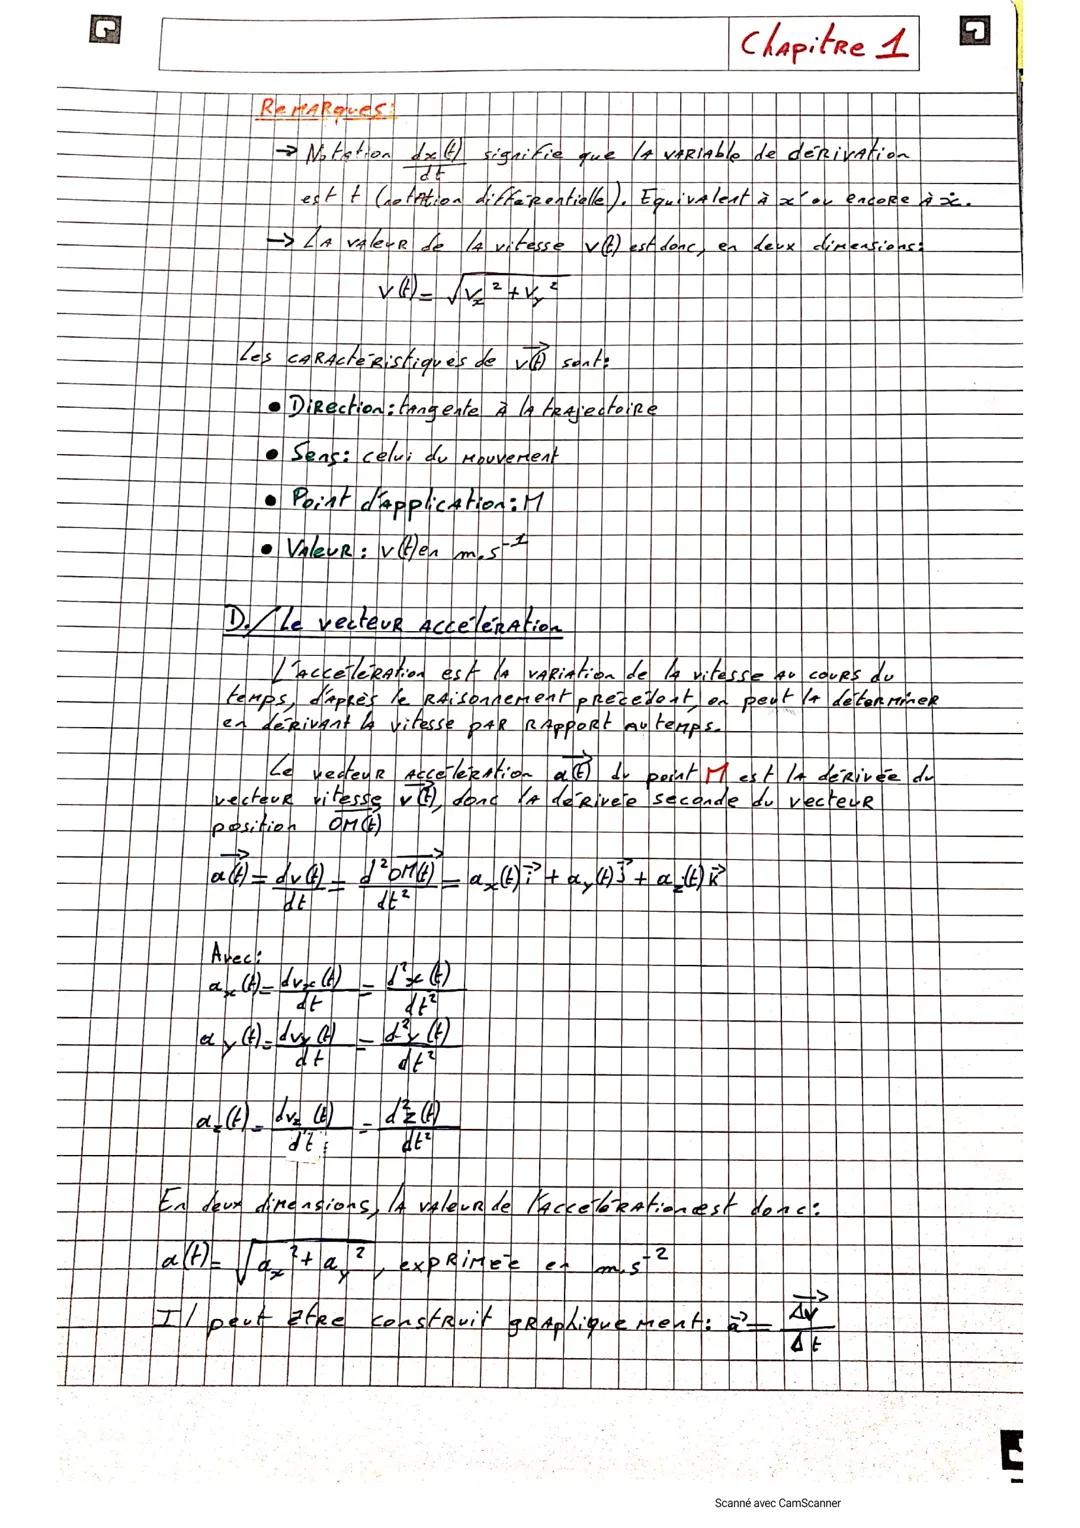 Chapitre 1
Remarques:
→ Notation dx(t)/dt signifie que la variable de dérivation
est t (notation différentielle). Equivalent à x' ou encore à ẋ.
→ La valeur de la vitesse v(t) est donc, en deux dimensions:
v(t) = √(vx² + vy²)
Les caractéristiques de v(t)→ sont:
• Direction: tangente à la trajectoire
• Sens: celui du mouvement
• Point d'application: M
• Valeur: v(t) en m.s⁻¹
D./ Le vecteur accélération
L'accélération est la variation de la vitesse au cours du
temps, d'après le raisonnement précédent, on peut la déterminer
en dérivant la vitesse par rapport au temps.
Le vecteur accélération a(t)→ du point M est la dérivée du
vecteur vitesse v(t)→, donc la dérivée seconde du vecteur
position OM(t)→
a(t)→ = dv(t)→/dt = d²OM(t)→/dt² = ax(t)i→ + ay(t)j→ + az(t)k→
Avec:
ax(t) = dvx(t)/dt = d²x(t)/dt²
ay(t) = dvy(t)/dt = d²y(t)/dt²
az(t) = dvz(t)/dt = d²z(t)/dt²
En deux dimensions, la valeur de l'accélération est donc:
a(t) = √(ax² + ay²), exprimée en m.s⁻²
Il peut être construit graphiquement: a→ = Δv→/Δt
Scanné avec CamScanner